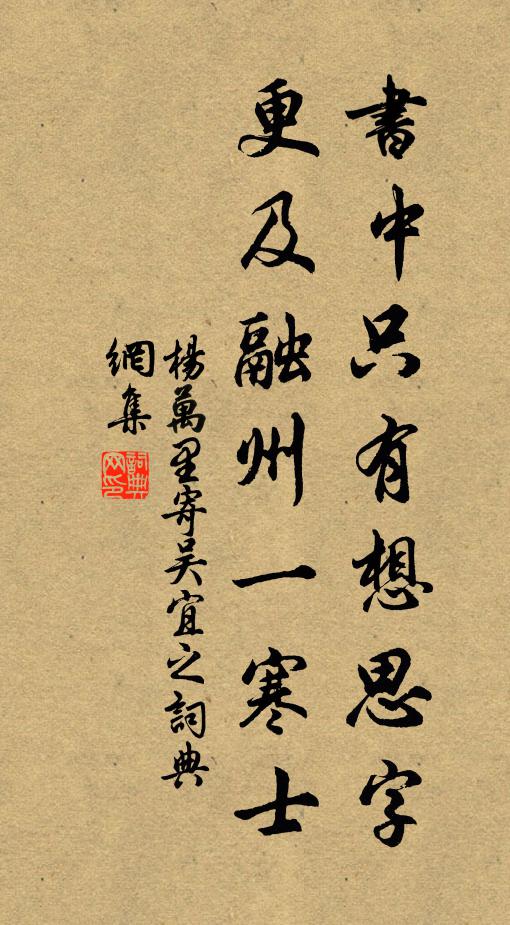 書中只有想思字
更及融州一寒士
楊萬里寄吴宜之詞典
網集
詞典
网印